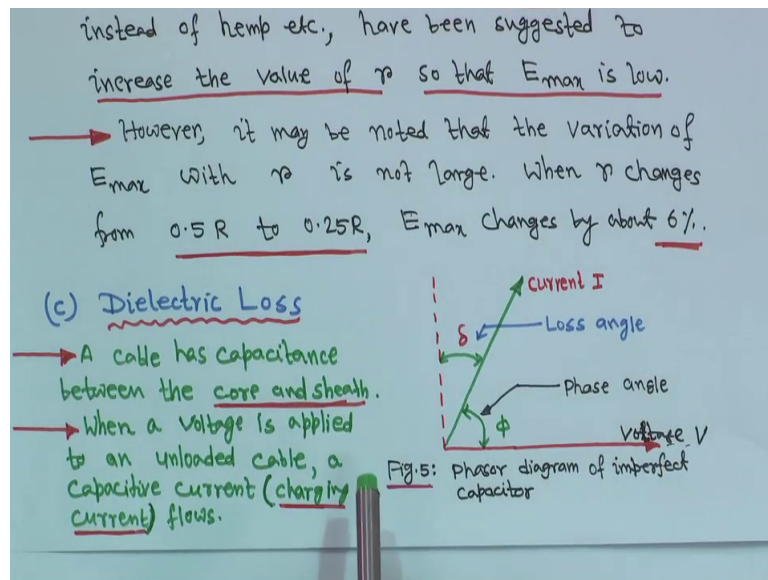 instead of hemp etc., have been suggested to
increase the value of r so that Emax is low.
However, it may be noted that the variation of
Emax with r is not large. When r changes
from 0.5 R to 0.25R, Emax changes by about 6%.
(c) Dielectric Loss
A cable has capacitance
between the core and sheath.
When a voltage is applied
to an unloaded cable, a
capacitive current (charging
current) flows.
Current I
δ
Loss angle
Phase angle
φ
Voltage V
Fig.5: Phasor diagram of imperfect
capacitor